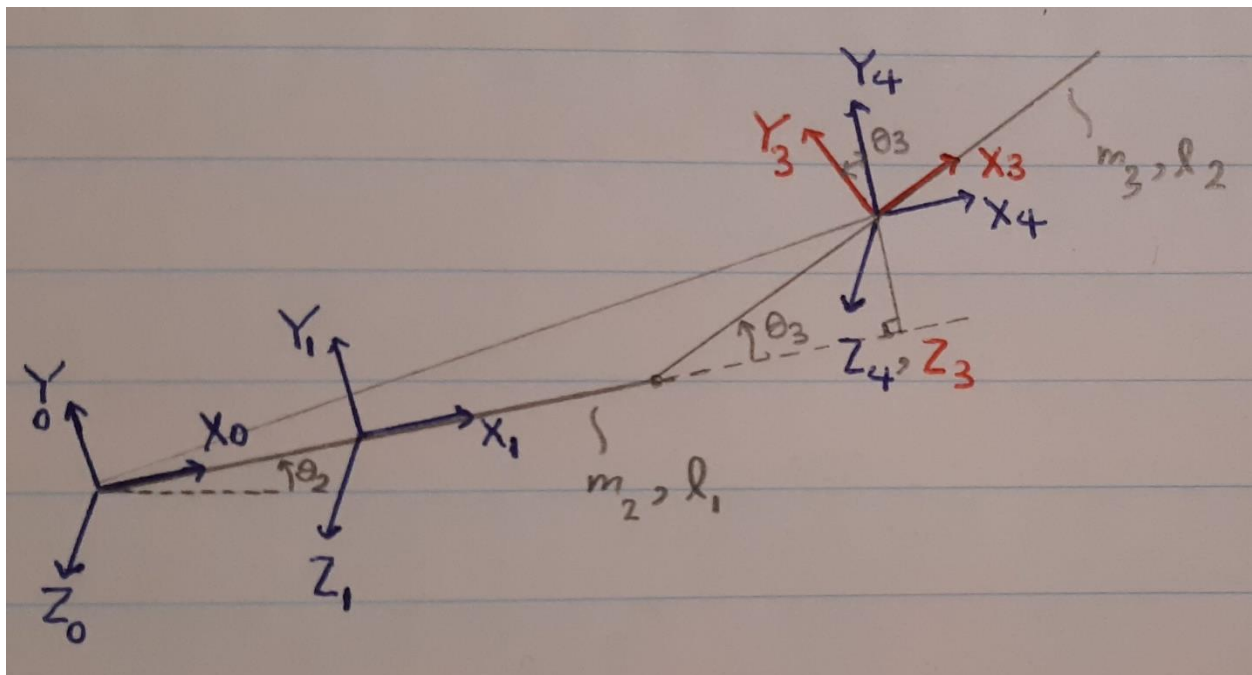 Y₄
Y₃ θ₃ X₃
m₃, l₂
X₄
Y₁ θ₃
Z₄, Z₃
Y₀ X₀ X₁
θ₂
m₂, l₁
Z₁
Z₀